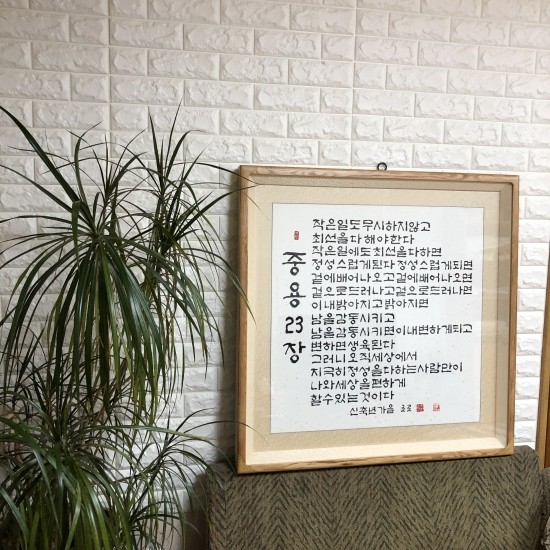 중용 23장
작은일도무시하지않고
최선을다해야한다
작은일에도최선을다하면
정성스럽게된다 정성스럽게되면
겉에배어나오고겉에배어나오면
겉으로드러나고겉으로드러나면
이내밝아지고밝아지면
남을감동시키고
남을감동시키면이내변하게되고
변하면생육된다
그러니오직세상에서
지극히정성을다하는사람만이
나와세상을변하게
할수있는것이다
신축년가을